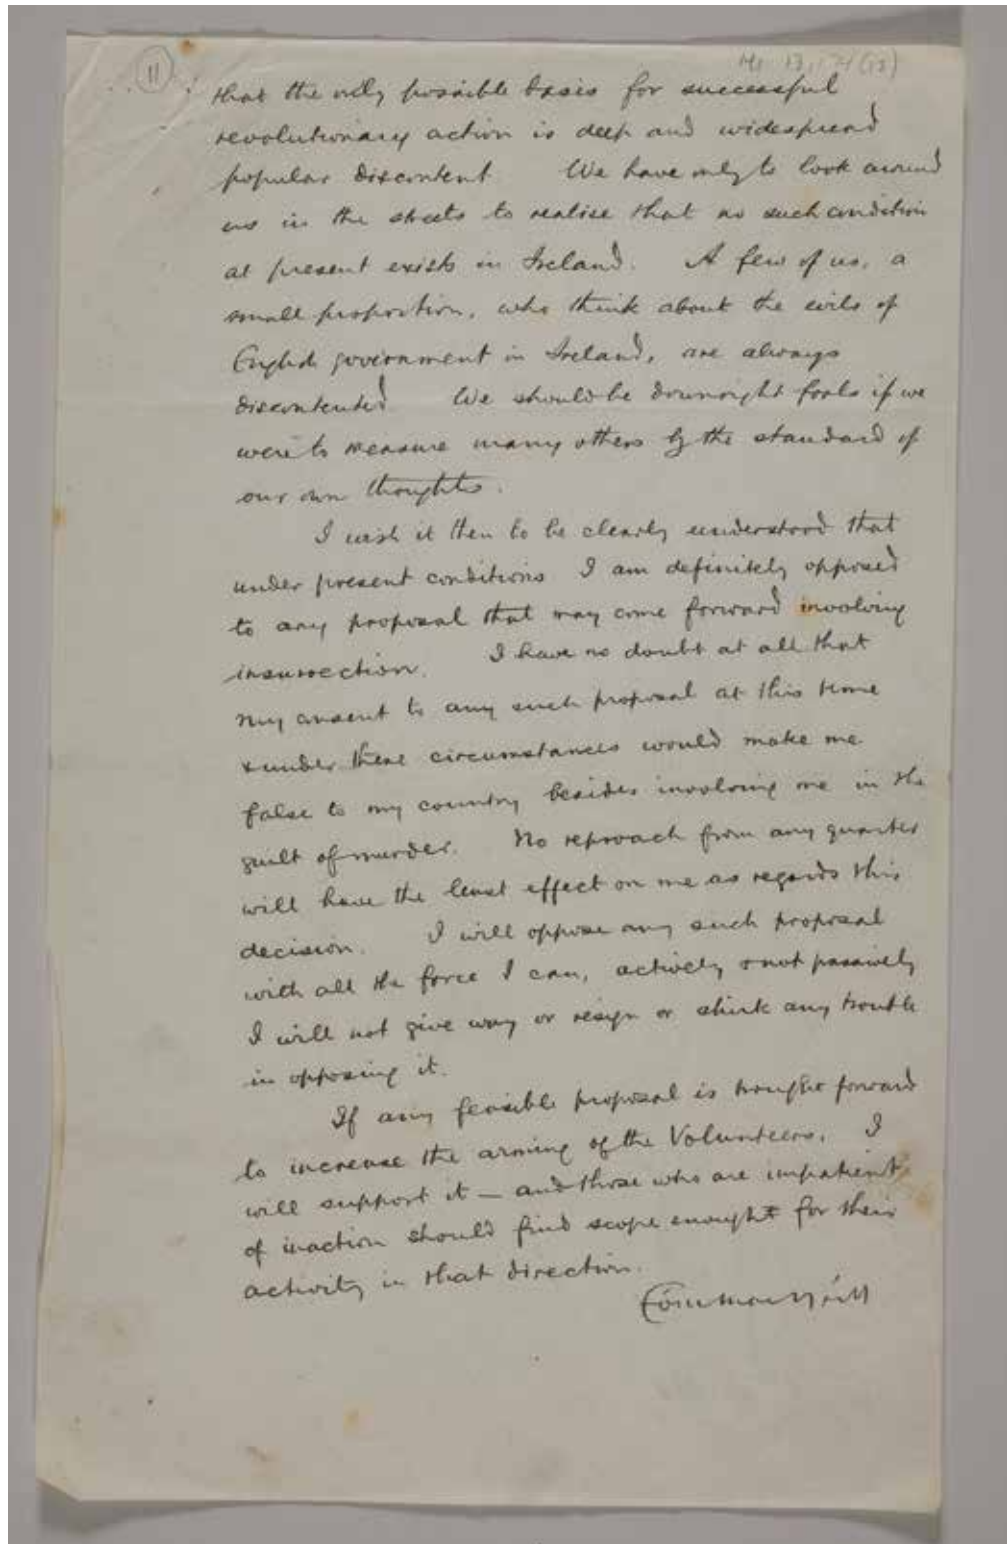 11
that the only possible basis for successful
revolutionary action is deep and widespread
popular discontent We have only to look around
us in the streets to realise that no such condition
at present exists in Ireland. A few of us, a
small proportion, who think about the evils of
English government in Ireland, are always
discontented We should be downright fools if we
were to measure many others by the standard of
our own thoughts.
I wish it then to be clearly understood that
under present conditions I am definitely opposed
to any proposal that may come forward involving
insurrection. I have no doubt at all that
my assent to any such proposal at this time
& under these circumstances would make me
false to my country besides involving me in the
guilt of murder. No reproach from any quarter
will have the least effect on me as regards this
decision. I will oppose any such proposal
with all the force I can, actively & not passively
I will not give way or resign or shirk any trouble
in opposing it.
If any feasible proposal is brought forward
to increase the arming of the Volunteers, I
will support it — and those who are impatient
of inaction should find scope enought for their
activity in that direction.
Eoin Mac Néill